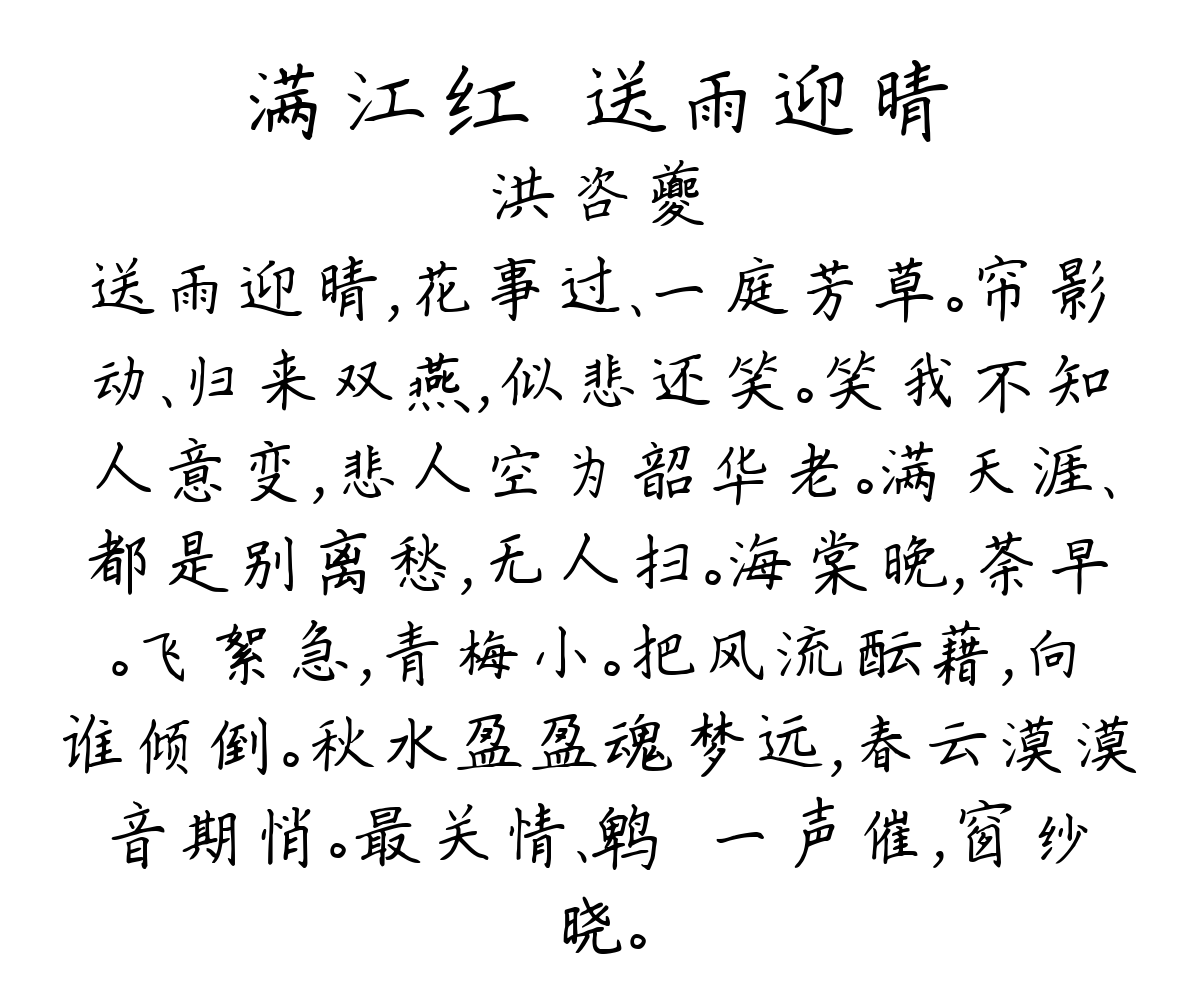 满江红 送雨迎晴
洪咨夔
送雨迎晴,花事过、一庭芳草。帘影
动、归来双燕,似悲还笑。笑我不知
人意变,悲人空为韶华老。满天涯、
都是别离愁,无人扫。海棠晚,荼早
。飞絮急,青梅小。把风流酝藉,向
谁倾倒。秋水盈盈魂梦远,春云漠漠
音期悄。最关情、鹎 一声催,窗纱
晓。